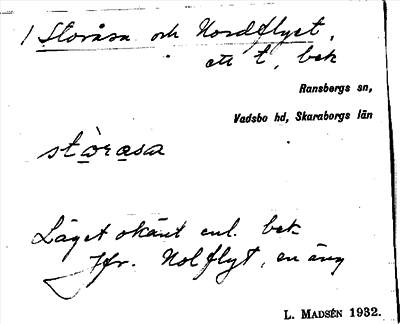 1 Storåsa och Nordflyet,
ett t, bek
Ransbergs sn,
Vadsbo hd, Skaraborgs län
stòrasa
Läget okänt enl. bek
Jfr. Nolflyt, en äng
L. MADSÉN 1932.